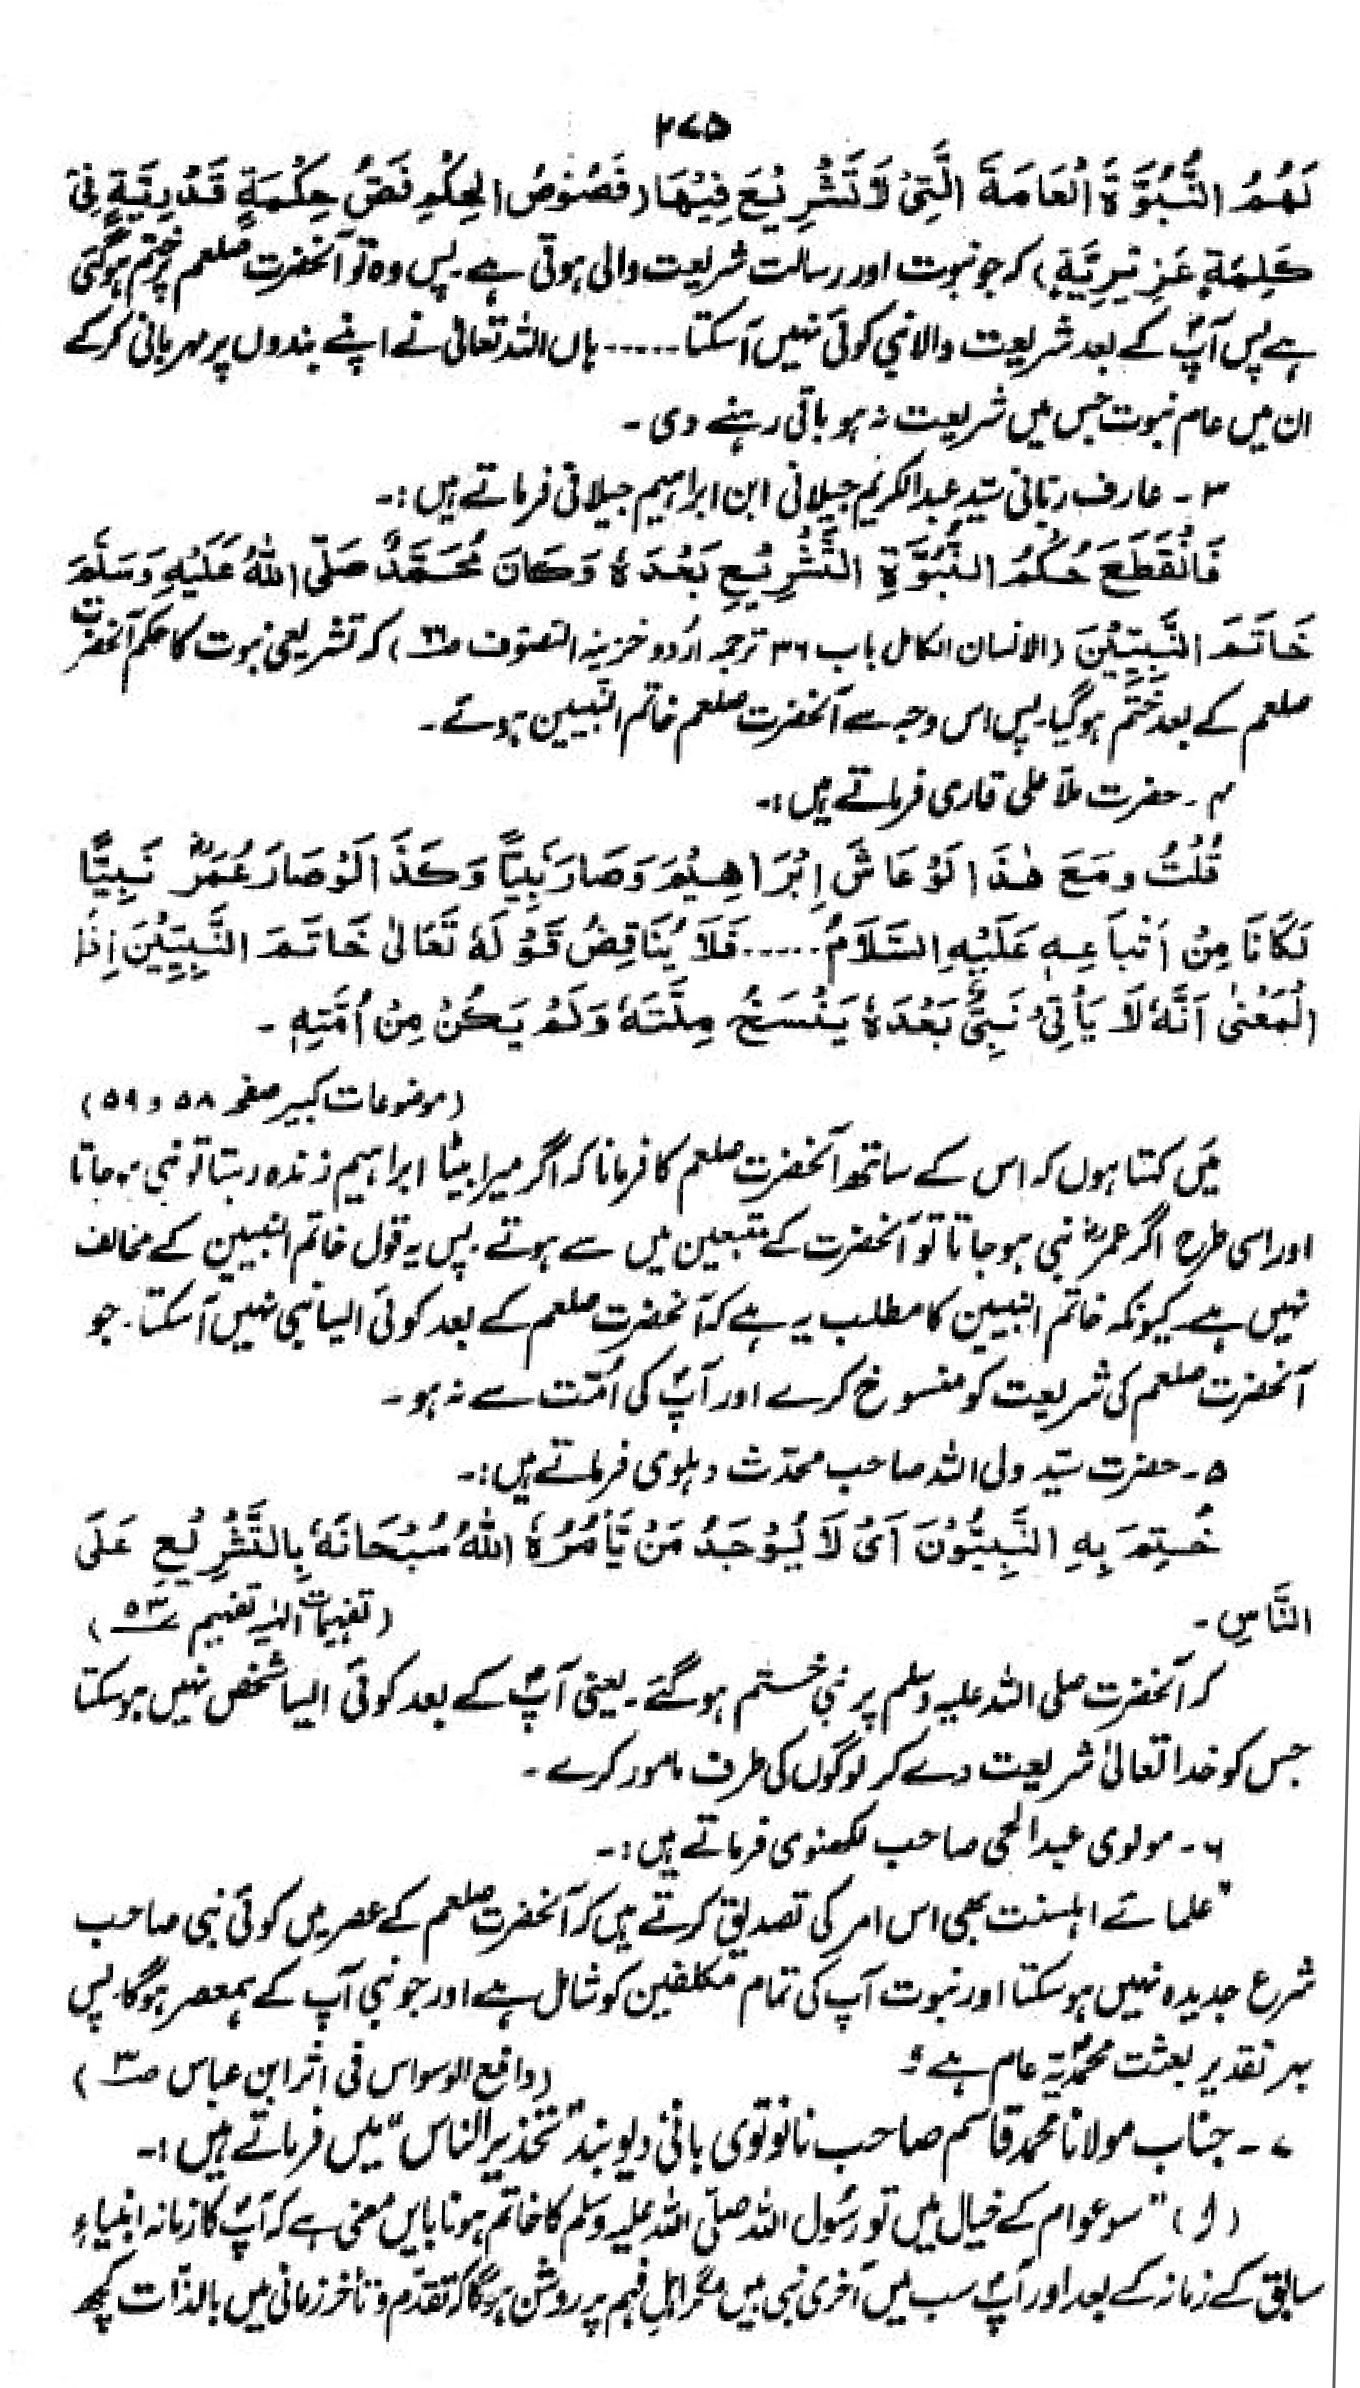 ۲۷۵
لَهُمُ النُّبُوَّةَ الْعَامَةَ الَّتِیْ لَا تَشْرِیْعَ فِیْهَا (فَصُوْصُ الْحِکْمِ فَصُّ حِکْمَةٍ قَدْرِیَّةٍ فِیْ
کَلِمَةٍ عَزِیْرِیَّةٍ) کہ جو نبوت اور رسالت شریعت والی ہوتی ہے۔ پس وہ تو آنحضرت صلعم پر ختم ہو گئی
ہے پس آپؐ کے بعد شریعت والا نبی کوئی نہیں آ سکتا ..... ہاں اللہ تعالیٰ نے اپنے بندوں پر مہربانی کر کے
ان میں عام نبوت جس میں شریعت نہ ہو باقی رہنے دی ۔
۳ ۔ عارف ربّانی سید عبدالکریم جیلانی ابن ابراہیم جیلانی فرماتے ہیں :۔
فَانْقَطَعَ حُکْمُ النُّبُوَّةِ التَّشْرِیْعِ بَعْدَهٗ وَکَانَ مُحَمَّدٌ صَلَّی اللّٰهُ عَلَیْهِ وَسَلَّمَ
خَاتَمَ النَّبِیِّیْنَ (الانسان الکامل باب ۳۶ ترجمہ اُردو خزینہ التصوّف ص۶۶) کہ تشریعی نبوت کا حکم آنحضرت
صلعم کے بعد ختم ہو گیا۔ پس اس وجہ سے آنحضرت صلعم خاتم النّبیین ہوئے ۔
۴ ۔ حضرت ملّا علی قاری فرماتے ہیں :۔
قُلْتُ وَمَعَ هٰذَا لَوْ عَاشَ اِبْرَاهِیْمَ وَصَارَ نَبِیًّا وَکَذَا لَوْ صَارَ عُمَرُؓ نَبِیًّا
لَکَانَا مِنْ اَتْبَاعِهٖ عَلَیْهِ السَّلَامُ ..... فَلَا یُنَاقِضُ قَوْلَهٗ تَعَالٰی خَاتَمَ النَّبِیِّیْنَ اِذَا
الْمَعْنٰی اَنَّهٗ لَا یَأْتِیْ نَبِیٌّ بَعْدَهٗ یَنْسَخُ مِلَّتَهٗ وَلَمْ یَکُنْ مِنْ اُمَّتِهٖ ۔
(موضوعات کبیر صفحہ ۵۸ و ۵۹)
میَں کہتا ہوں کہ اس کے ساتھ آنحضرت صلعم کا فرمانا کہ اگر میرا بیٹا ابراہیم زندہ رہتا تو نبی ہو جاتا
اور اسی طرح اگر عمرؓ نبی ہو جاتا تو آنحضرت کے متبعین میں سے ہوتے ۔ پس یہ قول خاتم النبیین کے مخالف
نہیں ہے۔ کیونکہ خاتم النبیین کا مطلب یہ ہے کہ آنحضرت صلعم کے بعد کوئی ایسا نبی نہیں آ سکتا ۔ جو
آنحضرت صلعم کی شریعت کو منسوخ کرے اور آپؐ کی اُمّت سے نہ ہو ۔
۵ ۔ حضرت سیّد ولی اللہ صاحب محدّث دہلوی فرماتے ہیں :۔
خُتِمَ بِهِ النَّبِیُّوْنَ اَیْ لَا یُوْجَدُ مَنْ یَأْمُرُهُ اللّٰهُ سُبْحَانَهٗ بِالتَّشْرِیْعِ عَلَی
النَّاسِ ۔
(تفہیمات الٰہیہ تفہیم ۵۳)
کہ آنحضرت صلی اللہ علیہ وسلم پر نبی ختم ہو گئے ۔ یعنی آپؐ کے بعد کوئی ایسا شخص نہیں ہو سکتا
جس کو خدا تعالیٰ شریعت دے کر لوگوں کی طرف مامور کرے ۔
۶ ۔ مولوی عبدالحی صاحب لکھنوی فرماتے ہیں :۔
"علمائے اہلسنت بھی اس امر کی تصدیق کرتے ہیں کہ آنحضرت صلعم کے عصر میں کوئی نبی صاحب
شرع جدیدہ نہیں ہو سکتا اور نبوت آپ کی تمام مکلفین کو شامل ہے اور جو نبی آپ کے ہمعصر ہوگا۔ پس
بہر تقدیر بعثت محمدؐیہ عام ہے"
(دافع الوسواس فی اثر ابن عباس ص۳)
۷ ۔ جناب مولانا محمد قاسم صاحب نانوتوی بانی دیوبند "تحذیر الناس" میں فرماتے ہیں :۔
(ل) "سو عوام کے خیال میں تو رسُول اللہ صلّی اللہ علیہ وسلم کا خاتم ہونا بایں معنی ہے کہ آپؐ کا زمانہ انبیاء
سابق کے زمانہ کے بعد اور آپؐ سب میں آخری نبی ہیں مگر اہلِ فہم پر روشن ہوگا کہ تقدّم و تأخر زمانی میں بالذّات کچھ